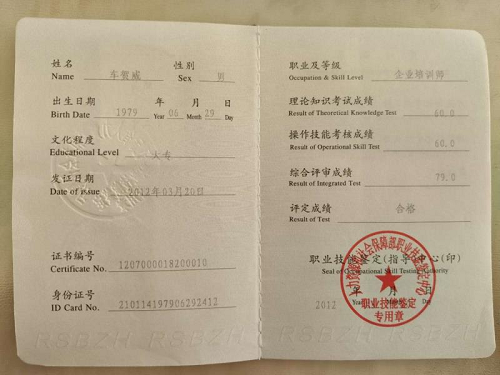 姓名 性别
Name 车贺威 Sex 男
出生日期 年 月 日
Birth Date 1979 Year 06 Month 29 Day
文化程度
Educational Level 大专
发证日期
Date of issue 2012年03月20日
证书编号
Certificate No. 1207000018200010
身份证号
ID Card No. 210114197906292412
职业及等级
Occupation & Skill Level 企业培训师
理论知识考试成绩
Result of Theoretical Knowledge Test 60.0
操作技能考核成绩
Result of Operational Skill Test 60.0
综合评审成绩
Result of Integrated Test 79.0
评定成绩
Result of Test 合格
职业技能鉴定(指导)中心(印)
Seal of Occupational Skill Testing Authority
2012 年 月 日
Year Day
职业技能鉴定
专用章